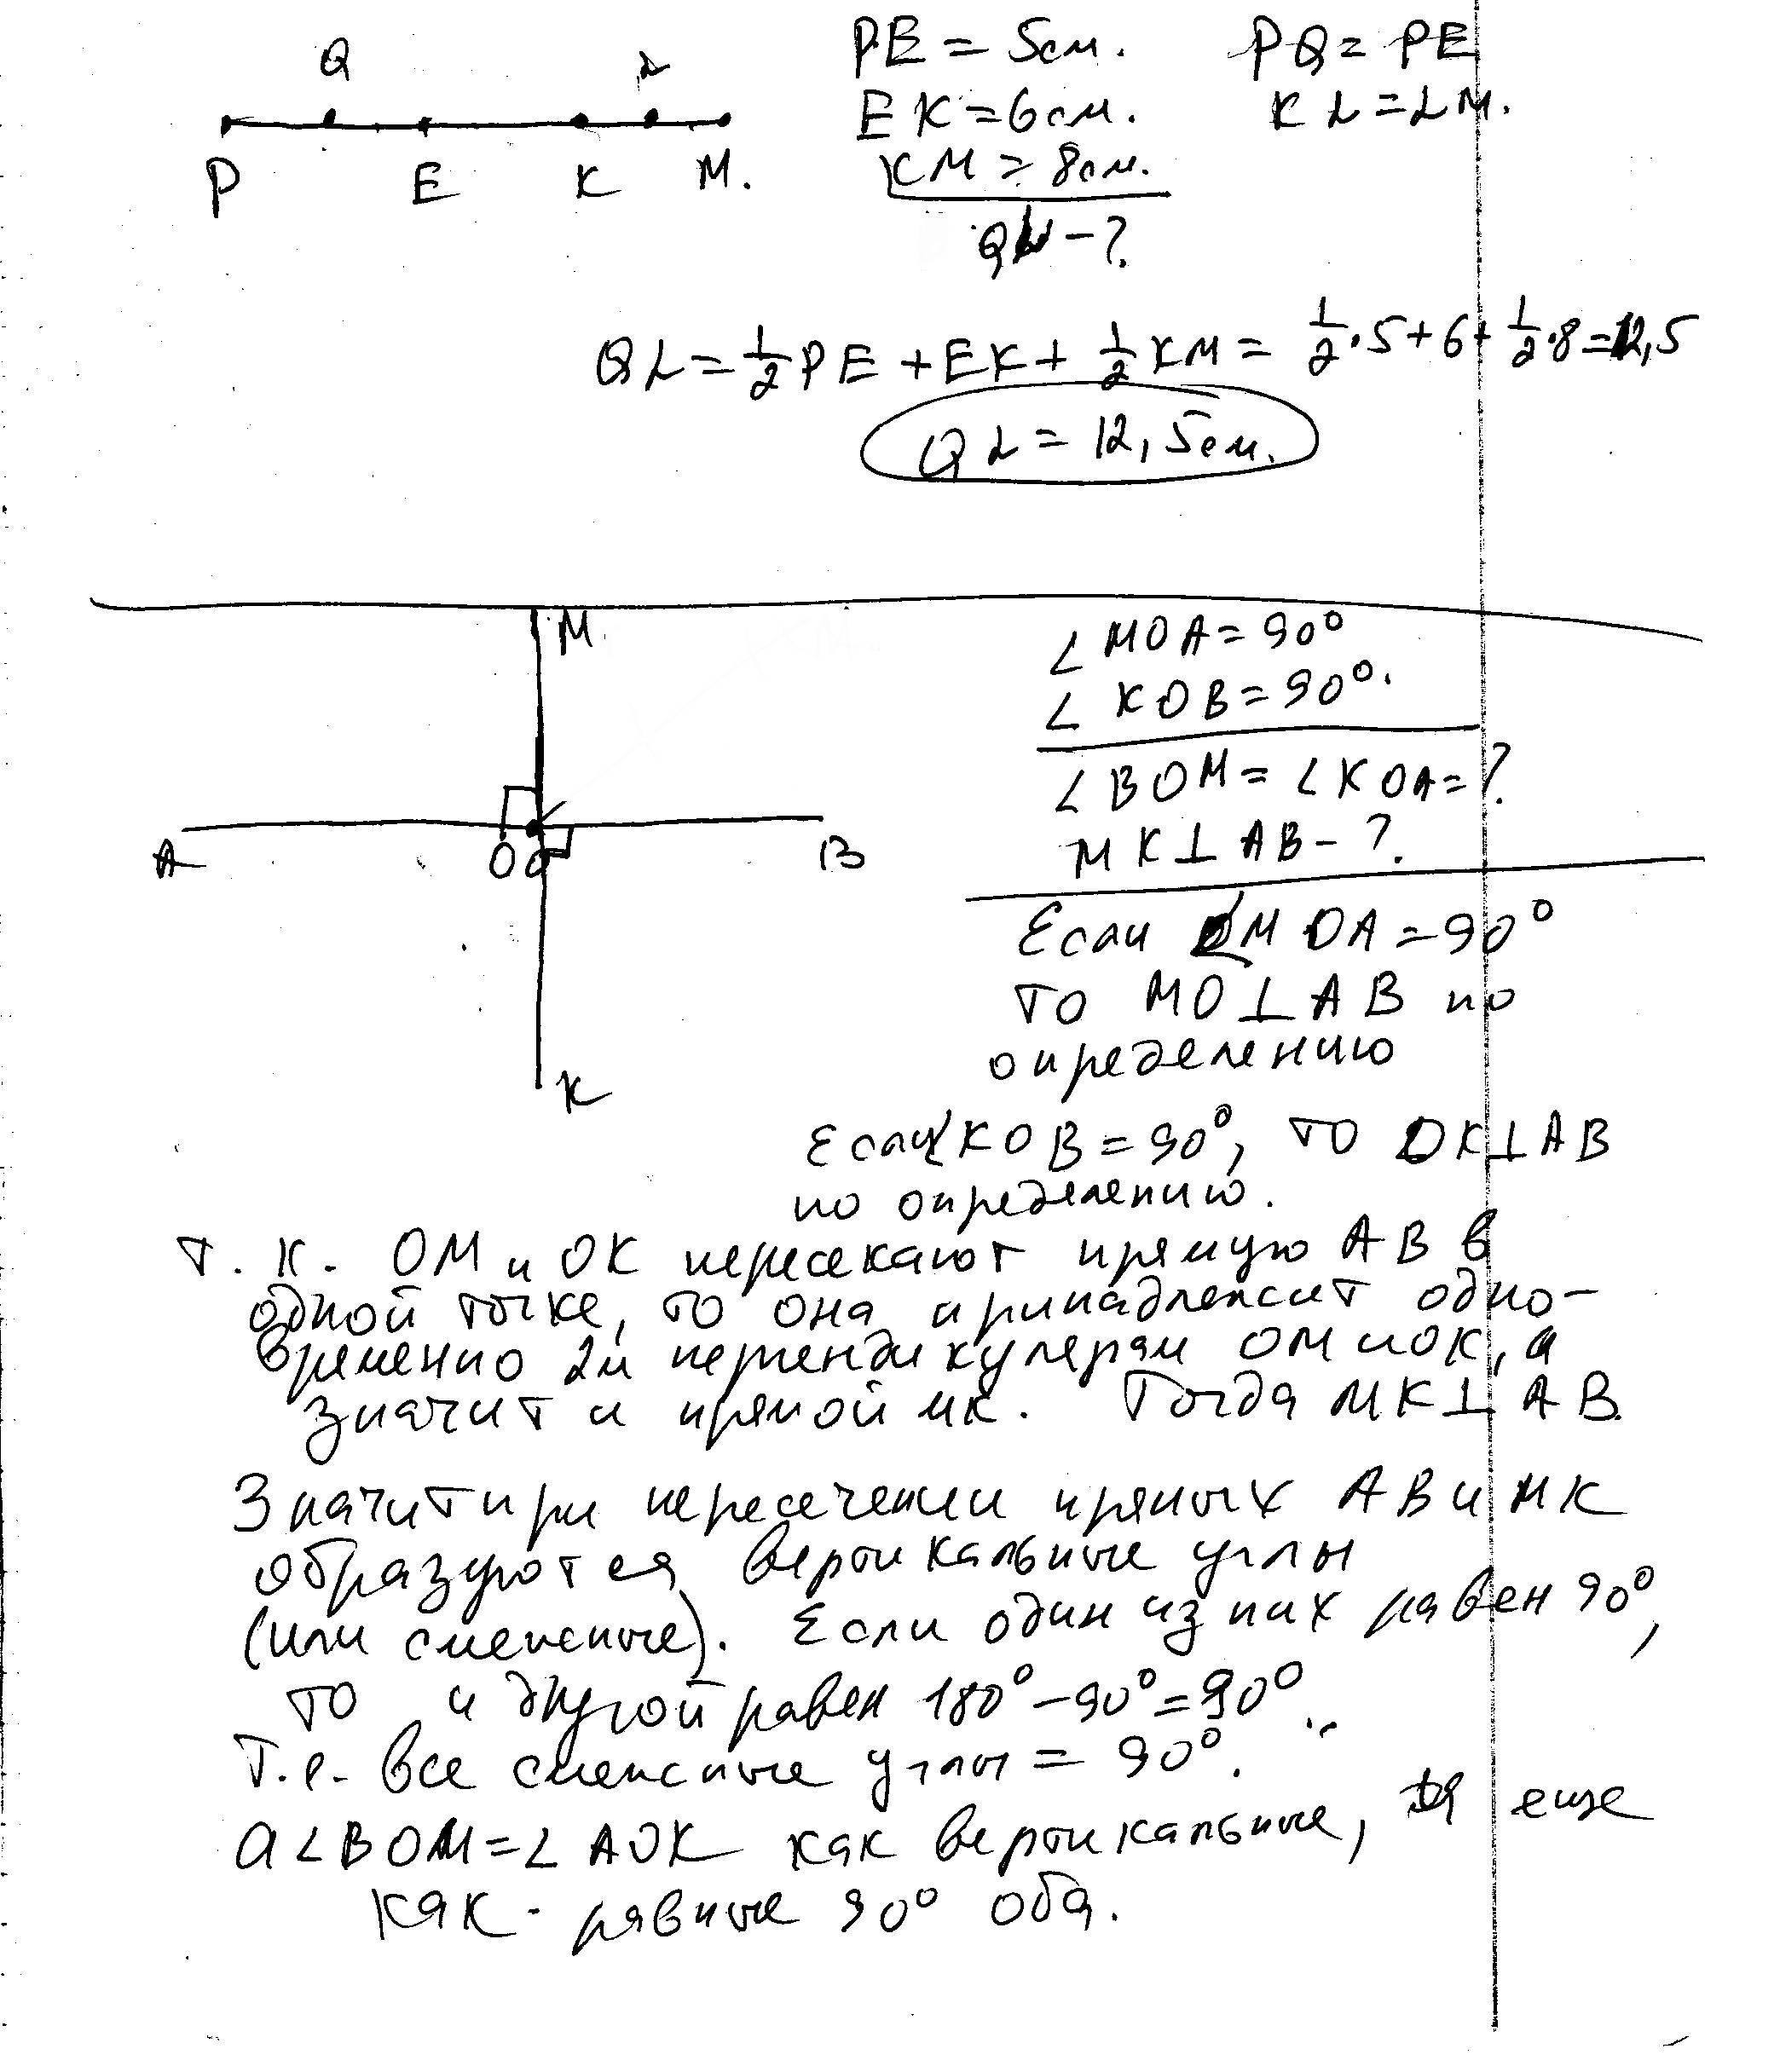 Q L
P E K M.
PE = 5см. PQ = PE
EK = 6см. KL = LM.
KM = 8см.
QL - ?
QL = 1/2 PE + EK + 1/2 KM = 1/2 · 5 + 6 + 1/2 · 8 = 12,5
QL = 12,5см.
M.
A O B
K
∠ MOA = 90°
∠ KOB = 90°.
∠ BOM = ∠ KOA = ?
MK ⊥ AB - ?.
Если ∠MOA = 90°
то MO ⊥ AB по
определению
Если ∠KOB = 90°, то OK ⊥ AB
по определению.
т. к. OM и OK пересекают прямую AB в
одной точке, то она принадлежит одно-
временно 2м перпендикулярам OM и OK, а
значит и прямой МК. Тогда MK ⊥ AB.
Значит при пересечении прямых AB и MK
образуются вертикальные углы
(или смежные). Если один из них равен 90°,
то и другой равен 180° - 90° = 90°
Т.е. все смежные углы = 90°.
а ∠BOM = ∠ AOK как вертикальные, да еще
как - равные 90° оба.